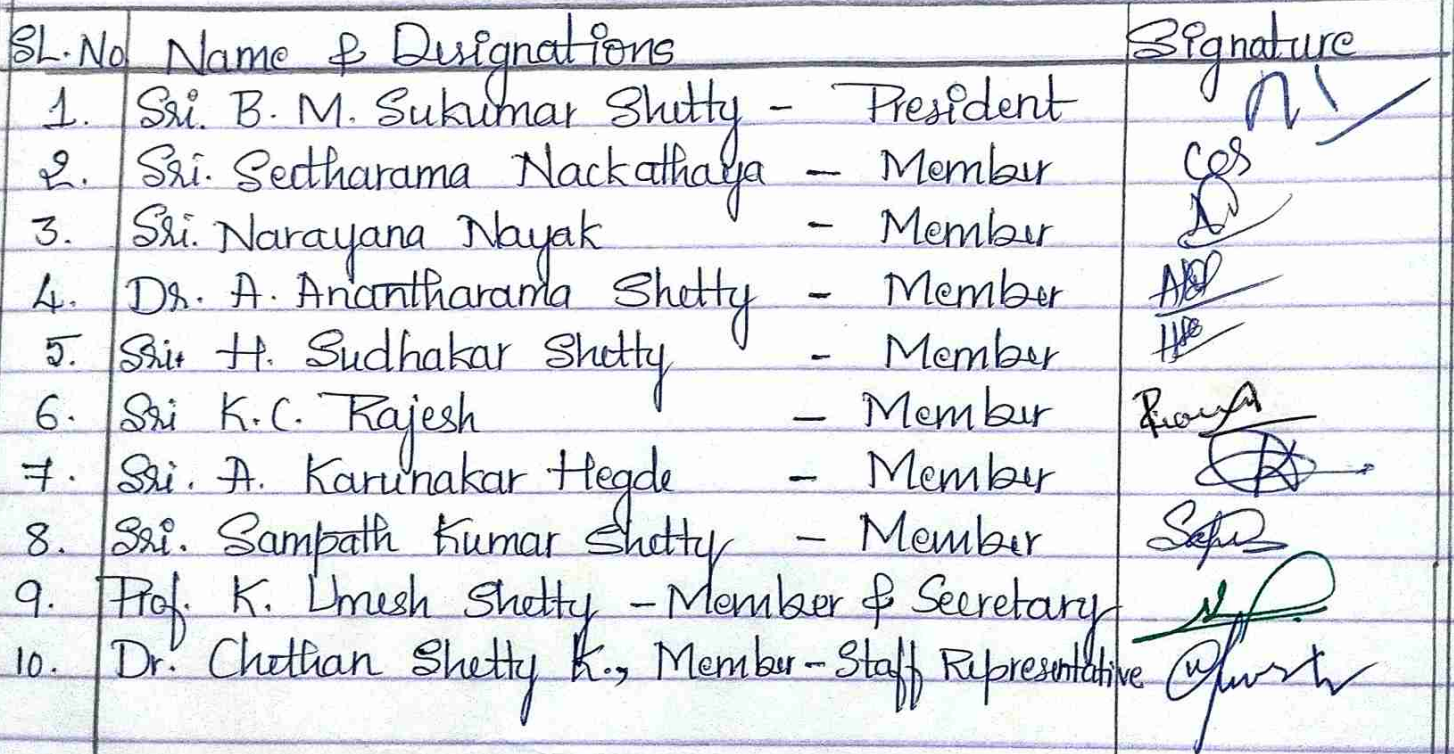 SL. No Name & Designations Signature
1. Sri. B. M. Sukumar Shetty - President
2. Sri. Seetharama Nackathaya - Member
3. Sri. Narayana Nayak - Member
4. Dr. A. Anantharama Shetty - Member
5. Sri. H. Sudhakar Shetty - Member
6. Sri K.C. Rajesh - Member
7. Sri. A. Karunakar Hegde - Member
8. Sri. Sampath Kumar Shetty - Member
9. Prof. K. Umesh Shetty - Member & Secretary
10. Dr. Chethan Shetty K., Member - Staff Representative